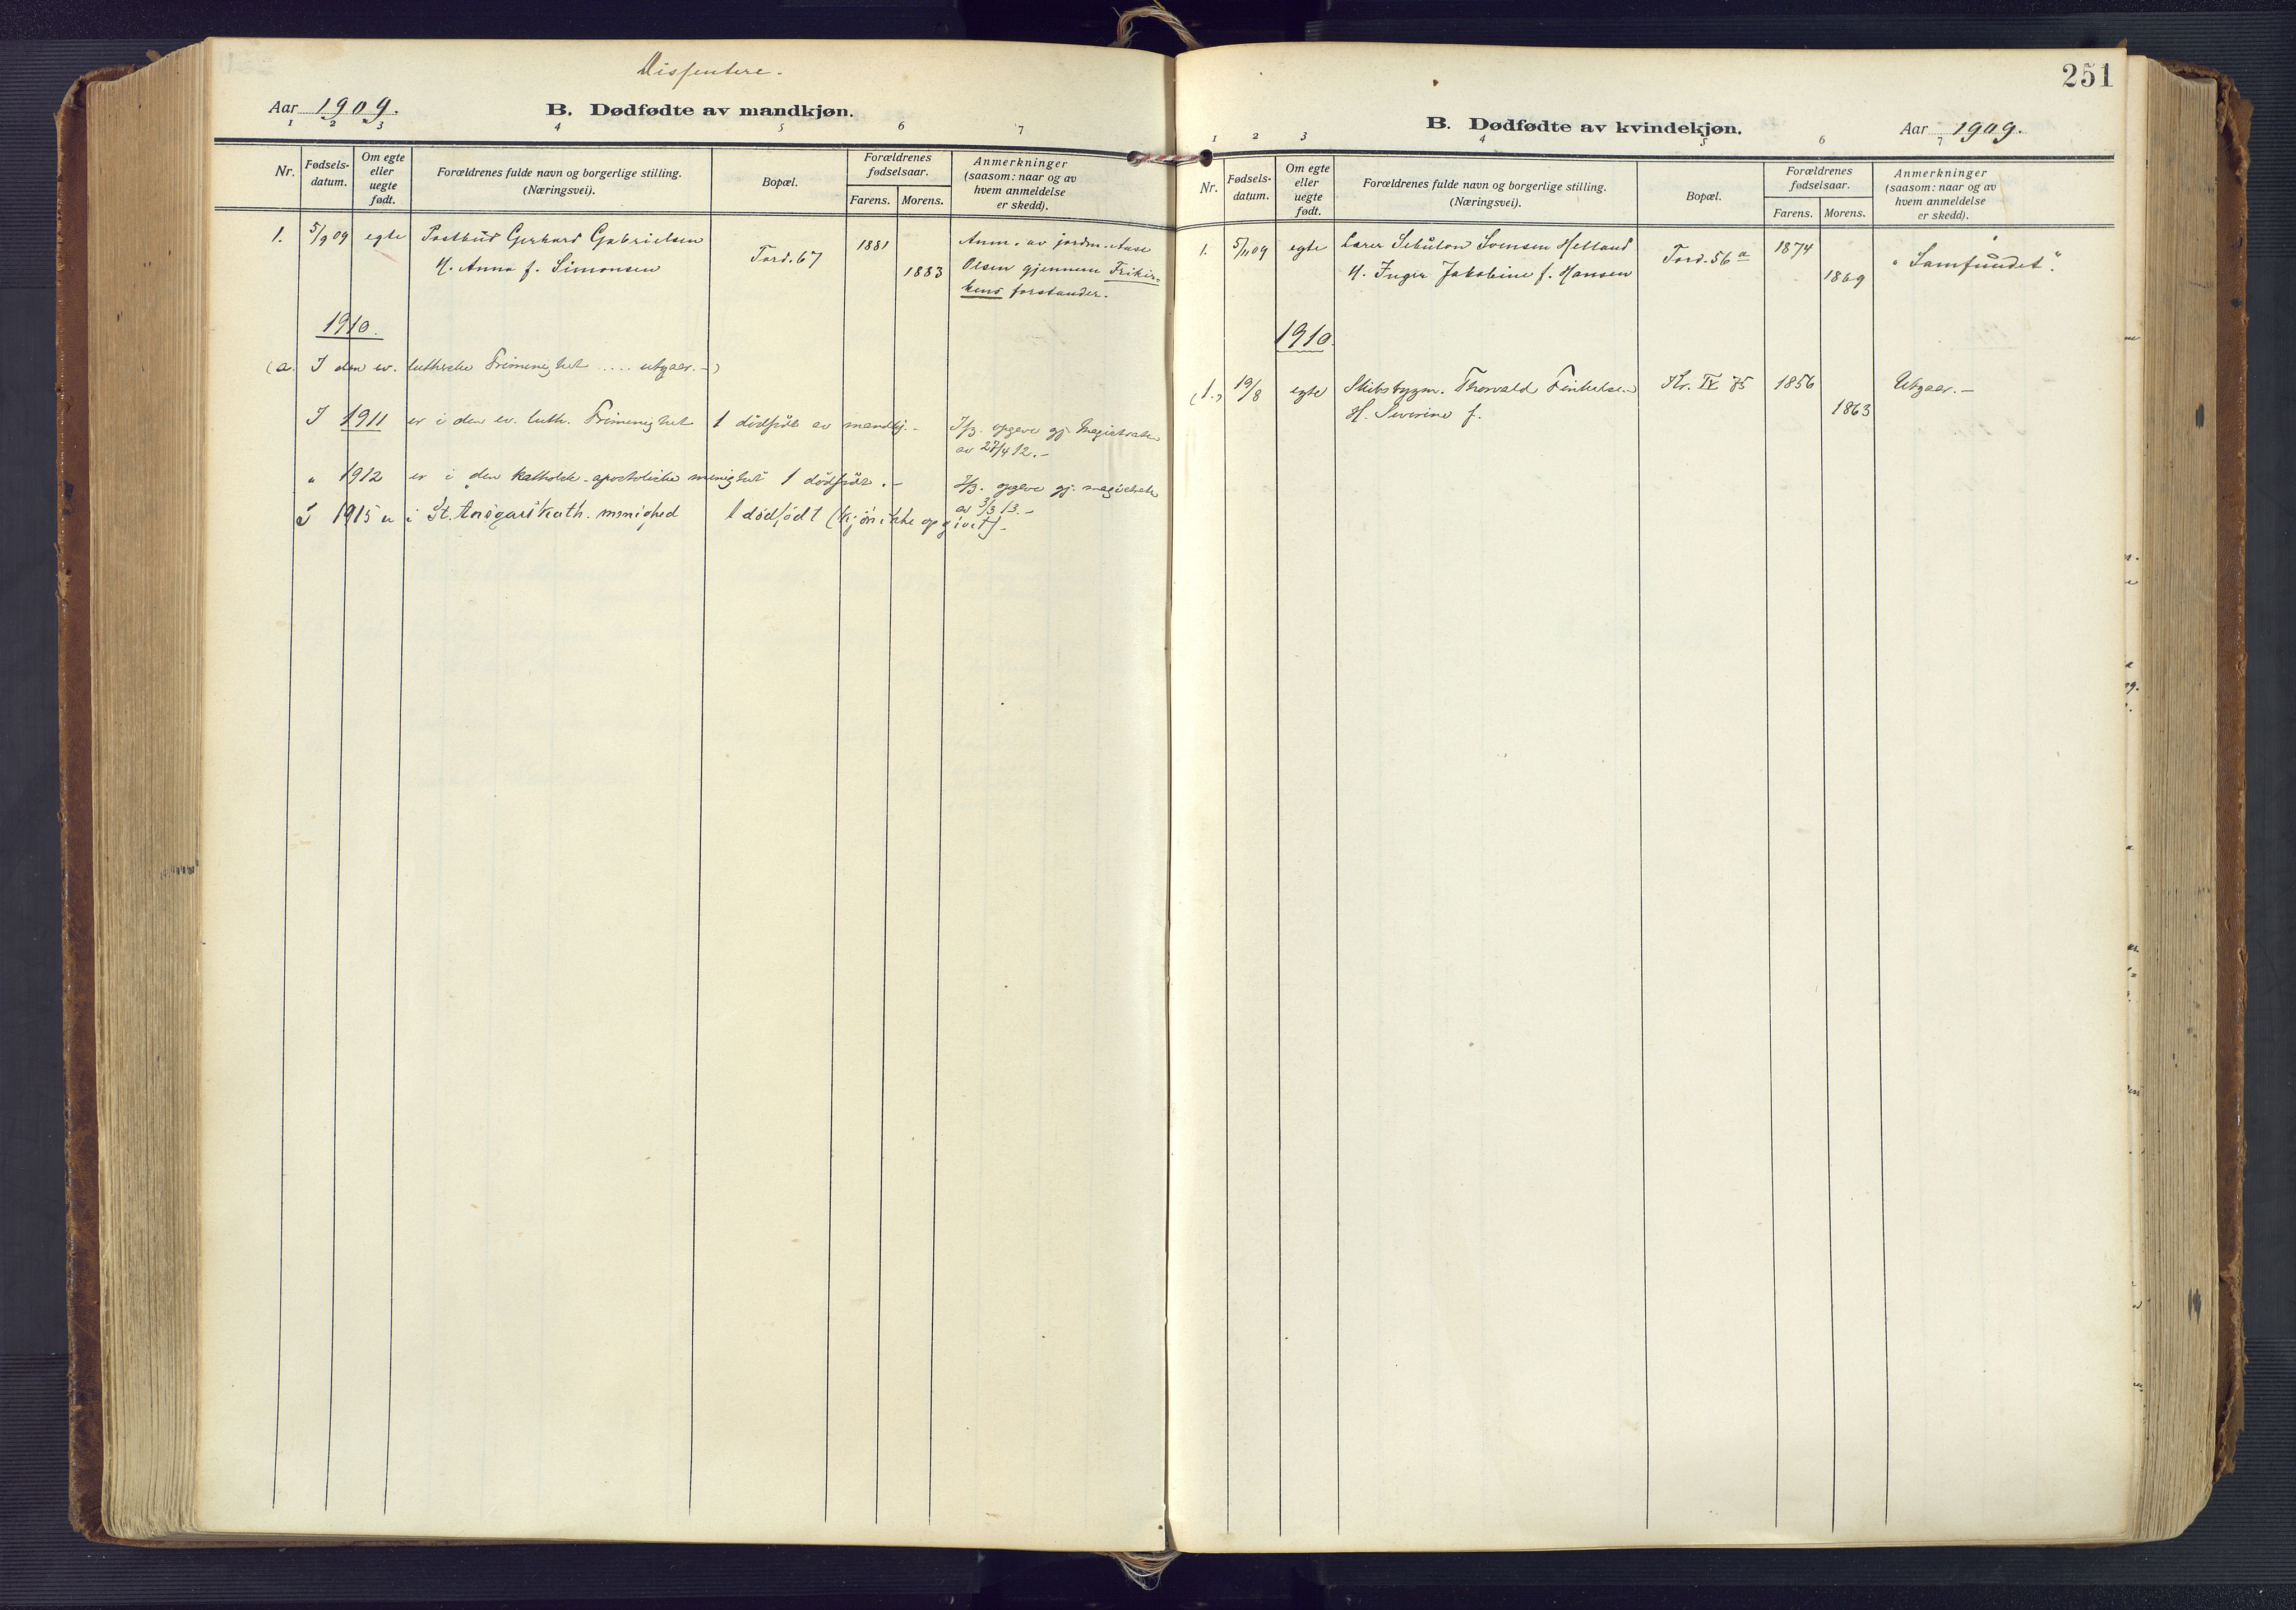 Dissentere.
Aar 1909.
B. Dødfødte av mandkjøn.
1 2 3 4 5 6 7
Nr.
Fødsels-
datum.
Om egte
eller
uegte
født.
Forældrenes fulde navn og borgerlige stilling.
(Næringsvei).
Bopæl.
Forældrenes
fødselsaar.
Farens. Morens.
Anmerkninger
(saasom: naar og av
hvem anmeldelse
er skedd).
1. 5/9 09 egte Postbud Gerhard Gabrielsen Tord. 67 1881 Anm. av jordm. Aase
H. Anna f. Simonsen 1883 Olsen gjennem Frikir-
kens forstander.
1910.
(a. I den ev. lutherske Frimenighet ..... utgaar. -)
I 1911 er i den ev. luth. Frimenighet 1 dødfødt av mandkj. - Ifg. opgave gj. Magistraten
av 27/4 12. -
" 1912 er i den katholsk-apostoliske menighet 1 dødfødt. - Ifg. opgave gj. magistraten
av 3/3 13. -
I 1915 er i St. Ansgars Kath. menighed 1 dødfødt (kjøn ikke opgivet).
251
B. Dødfødte av kvindekjøn.
Aar 1909.
1 2 3 4 5 6 7
Nr.
Fødsels-
datum.
Om egte
eller
uegte
født.
Forældrenes fulde navn og borgerlige stilling.
(Næringsvei).
Bopæl.
Forældrenes
fødselsaar.
Farens. Morens.
Anmerkninger
(saasom: naar og av
hvem anmeldelse
er skedd).
1. 5/11 09 egte Lærer Sebulon Svensen Helland Tord. 56 a 1874 "Samfundet".
H. Inger Jakobine f. Hansen 1869
1910.
(1.) 19/8 egte Skibsbygm. Thorvald Finkelsen Kr. IV 75 1856 Utgaar. -
H. Severine f. 1863